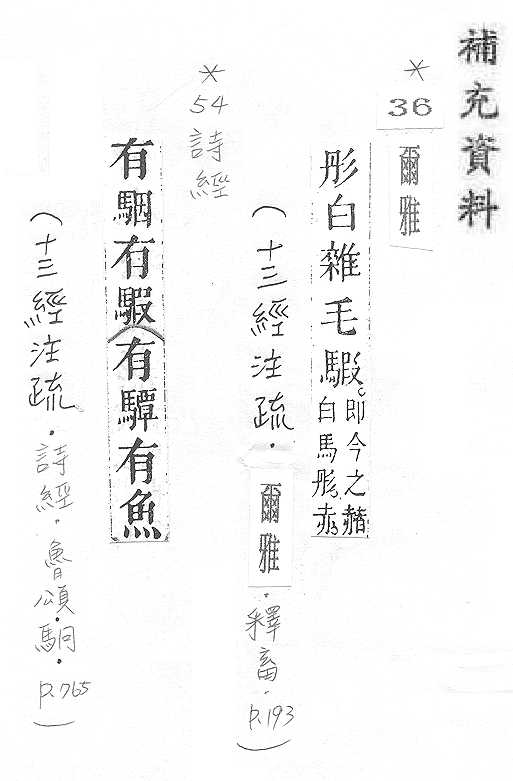 補充資料
＊
36
爾雅
彤白雜毛騢。即今之赭
白馬彤赤
（十三經注疏．爾雅．釋畜．P.193）
＊
54
詩經
有駰有騢(有驔有魚
（十三經注疏．詩經．魯頌．駉．P.765）